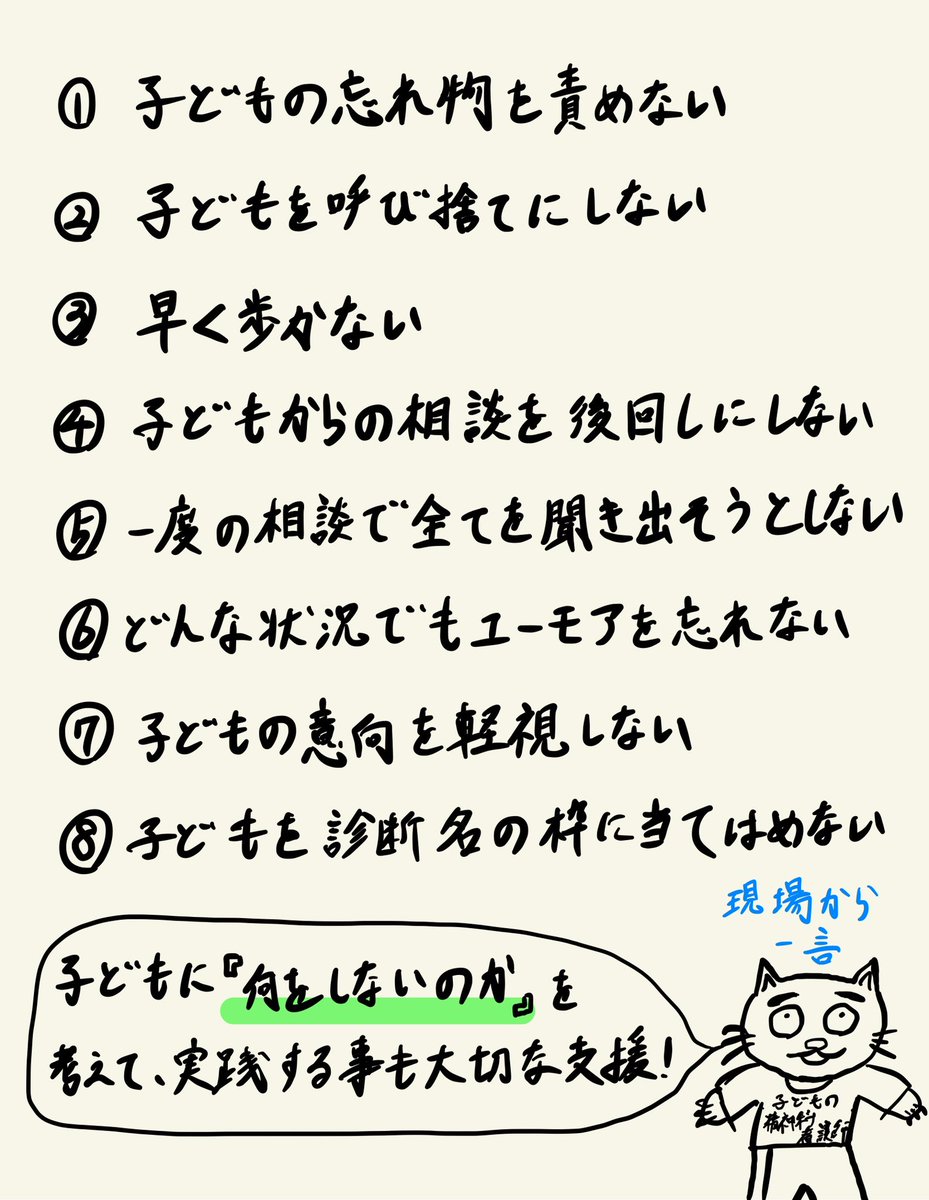 ① 子どもの忘れ物を責めない
② 子どもを呼び捨てにしない
③ 早く歩かない
④ 子どもからの相談を後回しにしない
⑤ 一度の相談で全てを聞き出そうとしない
⑥ どんな状況でもユーモアを忘れない
⑦ 子どもの意向を軽視しない
⑧ 子どもを診断名の枠に当てはめない
現場から
一言
子どもに『何をしないのか』を
考えて、実践する事も大切な支援!
子どもの
精神科
看護師